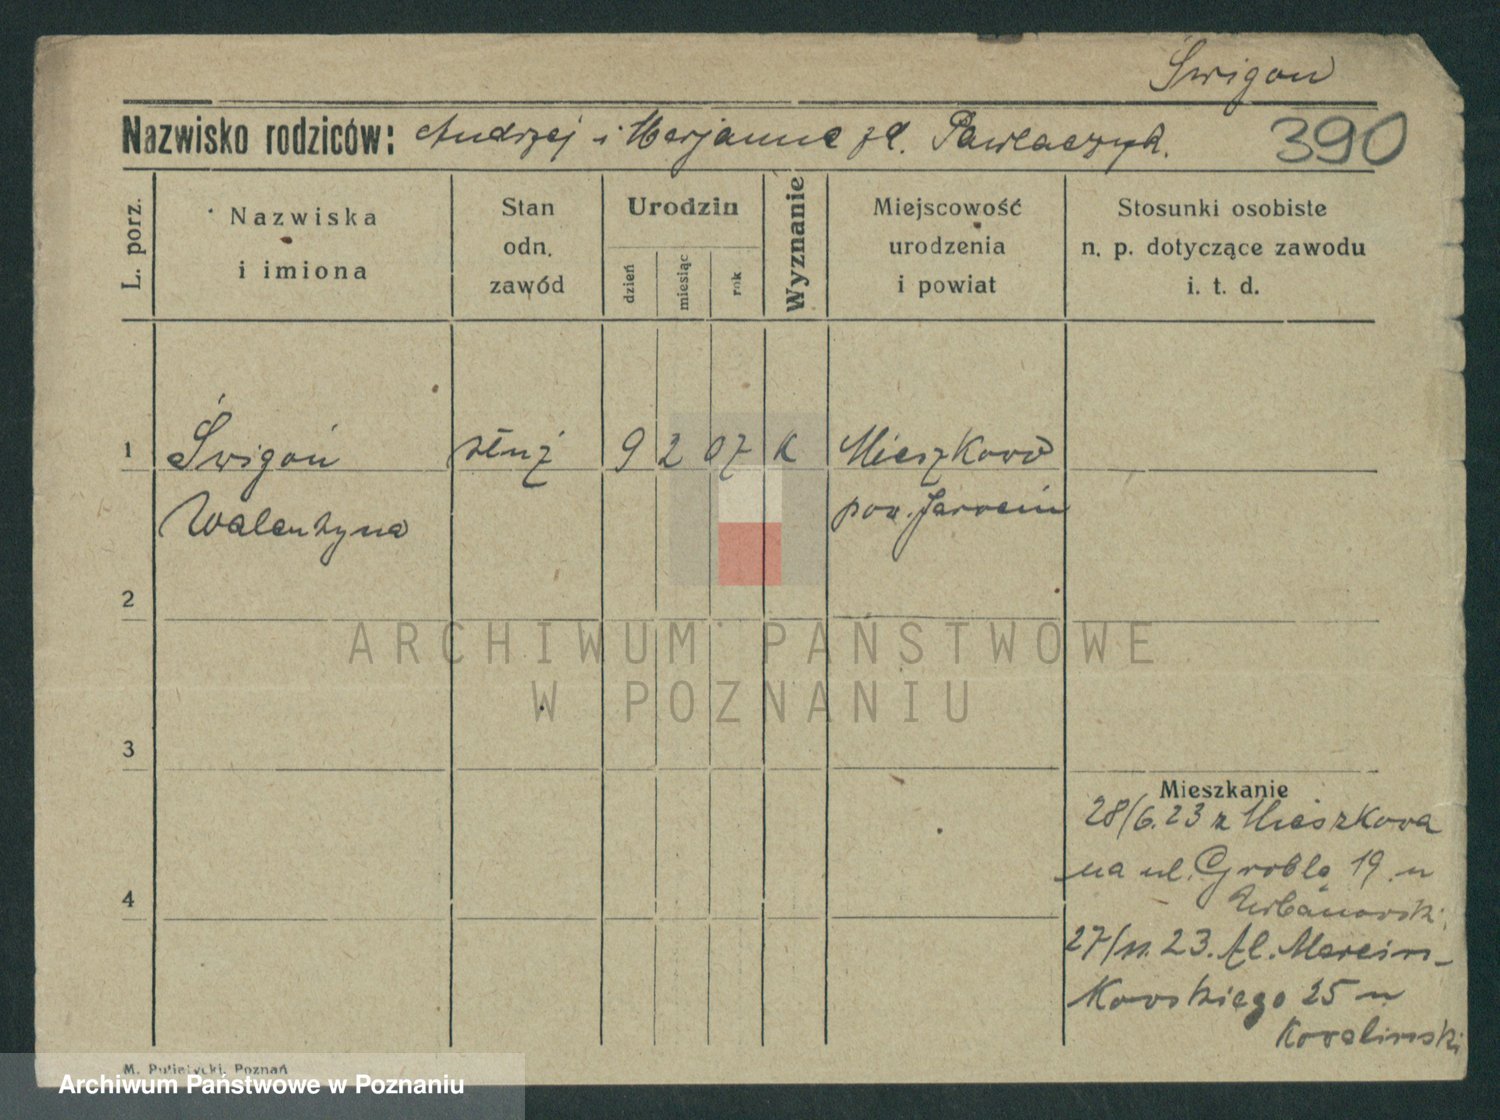 Świgoń
Nazwisko rodziców: Andrzej i Marjanna zd. Pawlaczyk. 390
L. porz.
Nazwiska
i imiona
Stan
odn.
zawód
Urodzin
dzień
miesiąc
rok
Wyznanie
Miejscowość
urodzenia
i powiat
Stosunki osobiste
n. p. dotyczące zawodu
i. t. d.
1 Świgoń służ 9 2 07 k Mieszkowo
Walentyna pow. Jarocin
2
ARCHIWUM PAŃSTWOWE
W POZNANIU
3
Mieszkanie
28/6.23 z Mieszkowa
na ul. Grobla 19 u
Urbanowski
4
27/11.23. Al. Marcin-
kowskiego 25 u
Kowalinski
M. Putiatycki, Poznań
Archiwum Państwowe w Poznaniu